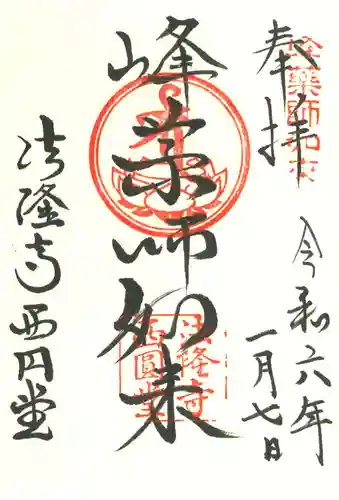 奉拝
峰薬師如来
令和六年
一月七日
峰薬師如来
法隆寺
西圓堂
法隆寺西円堂